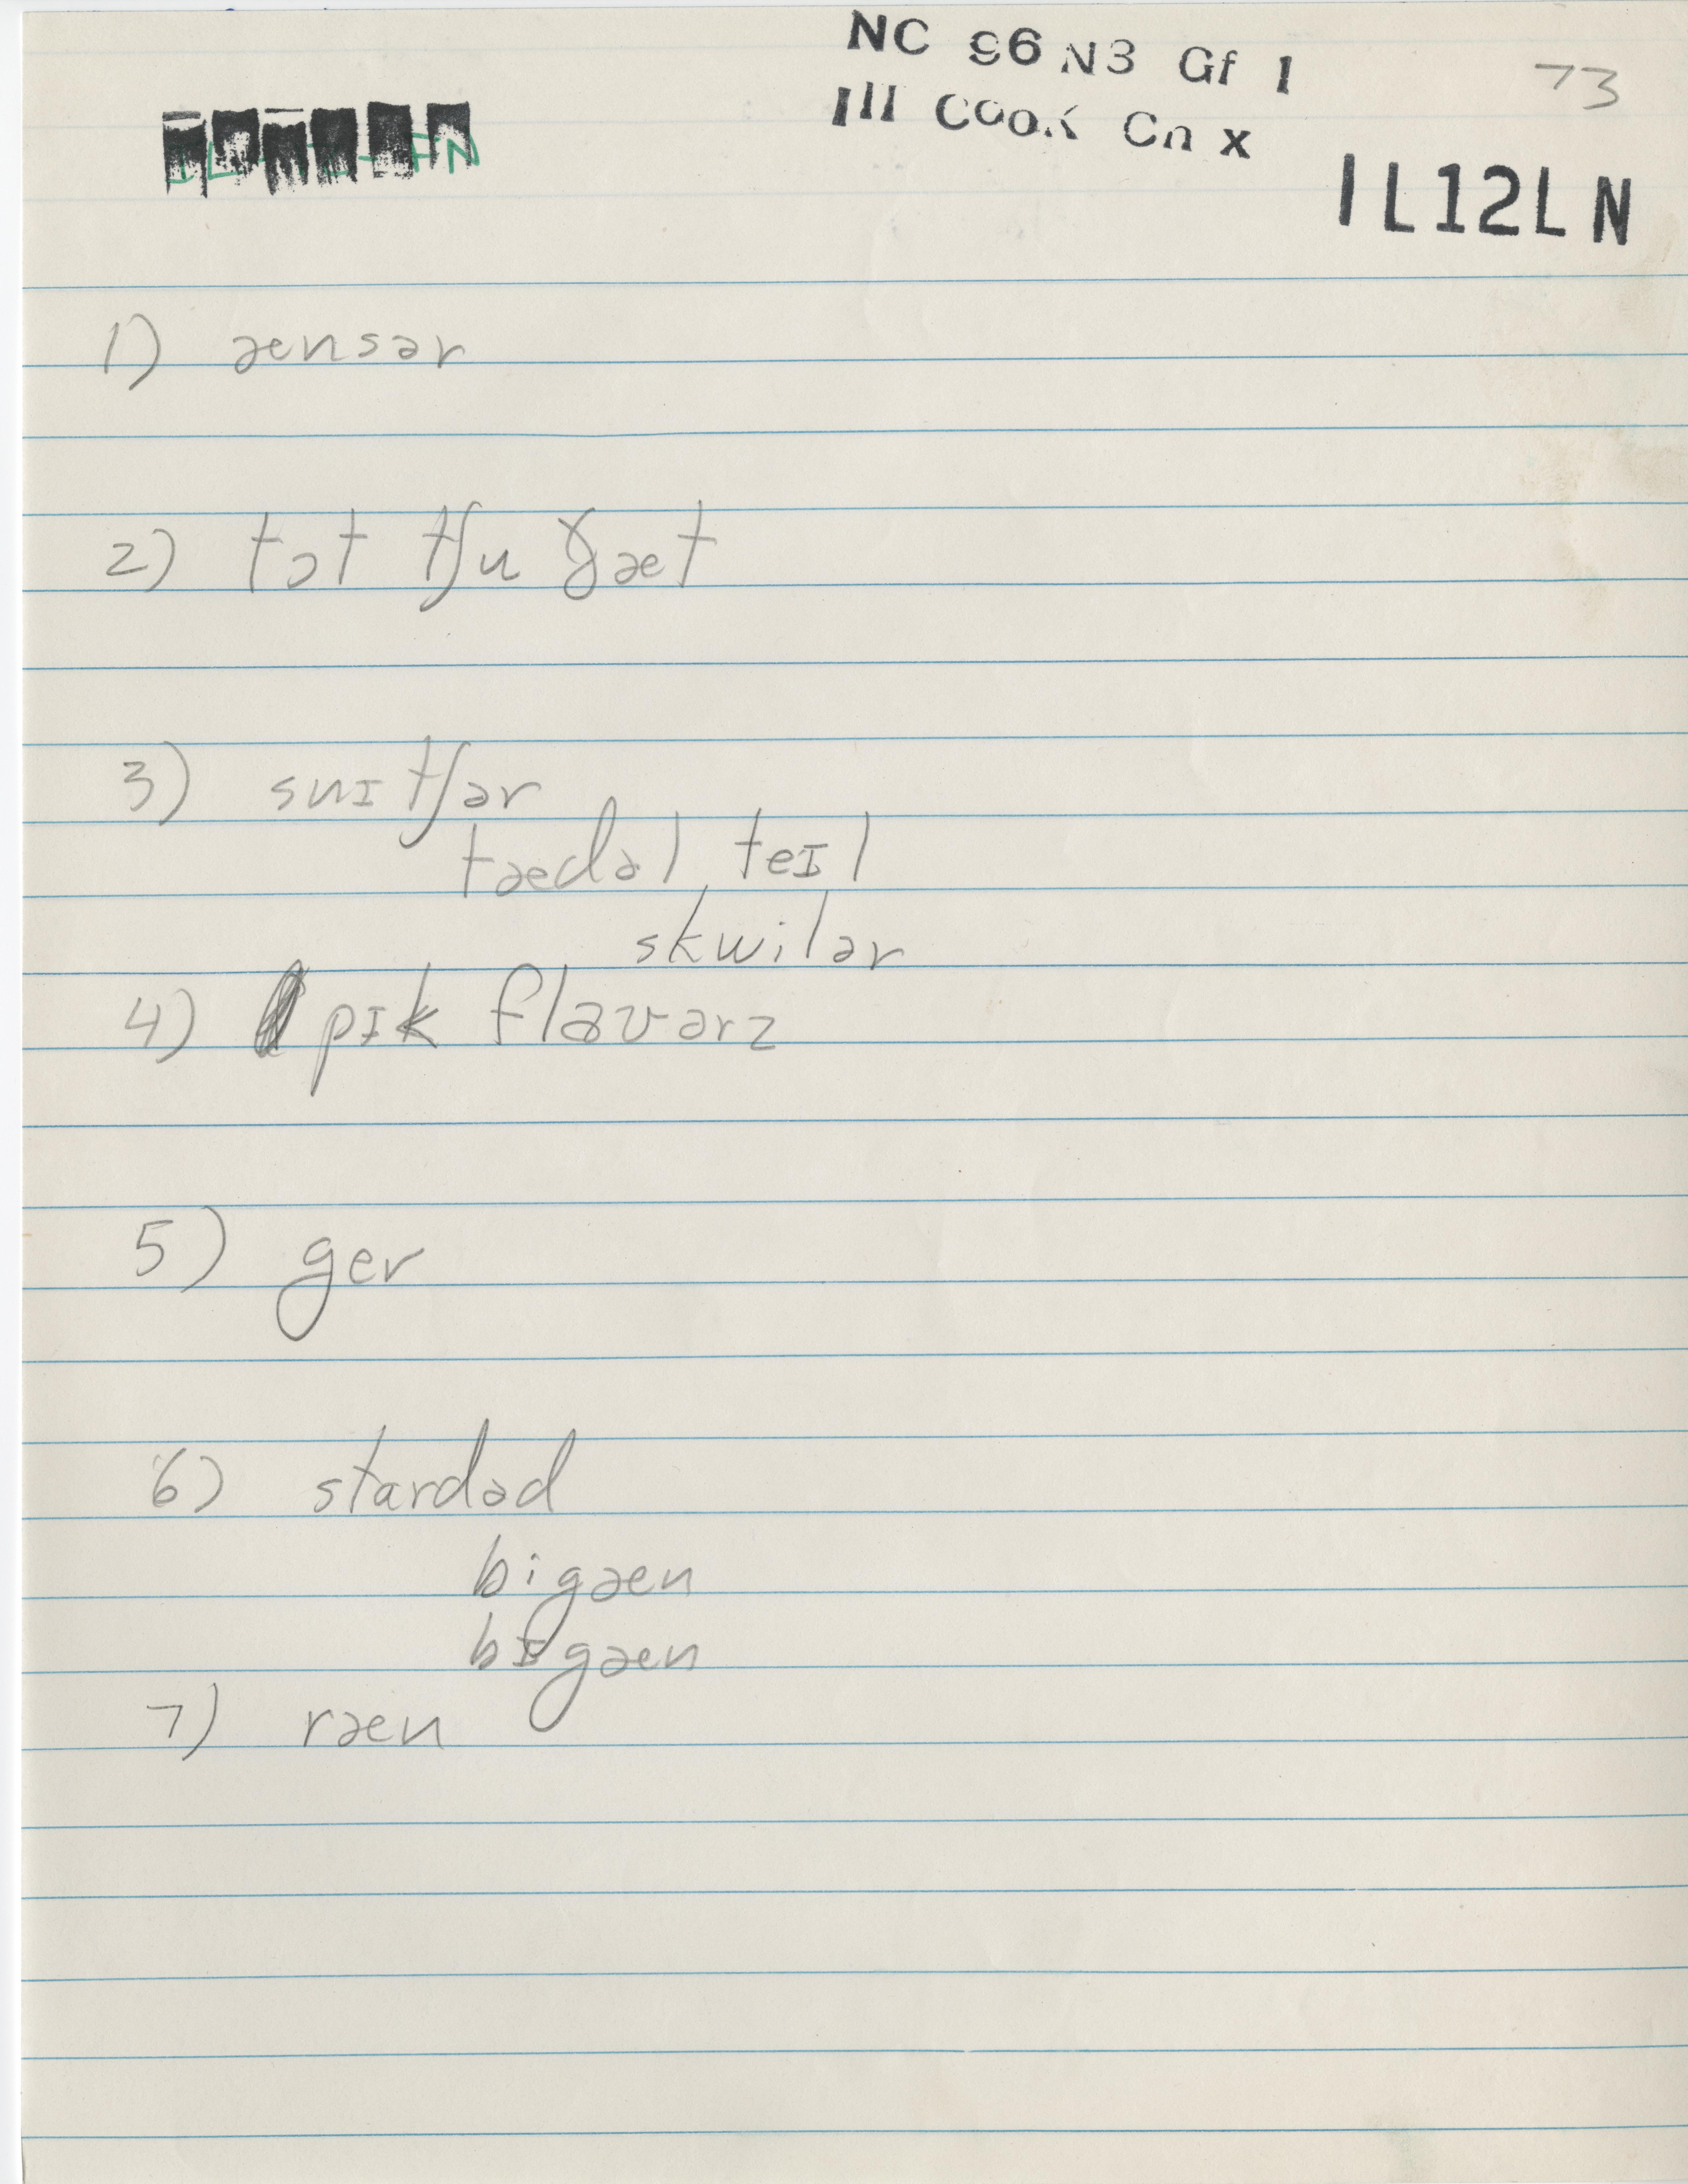 NC 96 N3 Gf 1
73
Ill Cook Cn x
IL12LN
1) ænsər
2) tɔt tʃu ðæt
3) snɪtʃər
tædəl teɪl
skwilər
4) pɪk flavərz
5) ger
6) stardəd
bigæn
bɪgæn
7) ræn